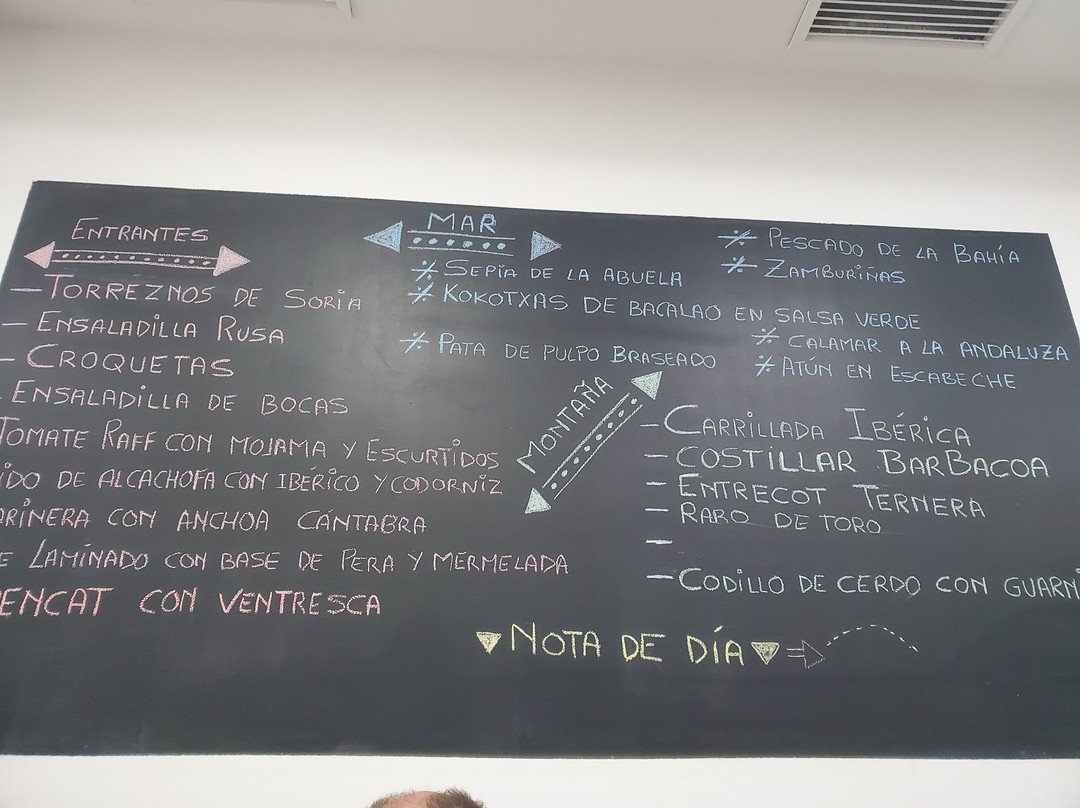 ENTRANTES
- TORREZNOS DE SORIA
- ENSALADILLA RUSA
- CROQUETAS
ENSALADILLA DE BOCAS
TOMATE RAFF CON MOJAMA Y ESCURTIDOS
IDO DE ALCACHOFA CON IBÉRICO Y CODORNIZ
RINERA CON ANCHOA CÁNTABRA
E LAMINADO CON BASE DE PERA Y MERMELADA
ENCAT CON VENTRESCA
MAR
SEPIA DE LA ABUELA
KOKOTXAS DE BACALAO EN SALSA VERDE
PATA DE PULPO BRASEADO
PESCADO DE LA BAHÍA
ZAMBURIÑAS
CALAMAR A LA ANDALUZA
ATÚN EN ESCABECHE
MONTAÑA
- CARRILLADA IBÉRICA
- COSTILLAR BARBACOA
- ENTRECOT TERNERA
- RABO DE TORO
-
- CODILLO DE CERDO CON GUARNI
NOTA DE DÍA